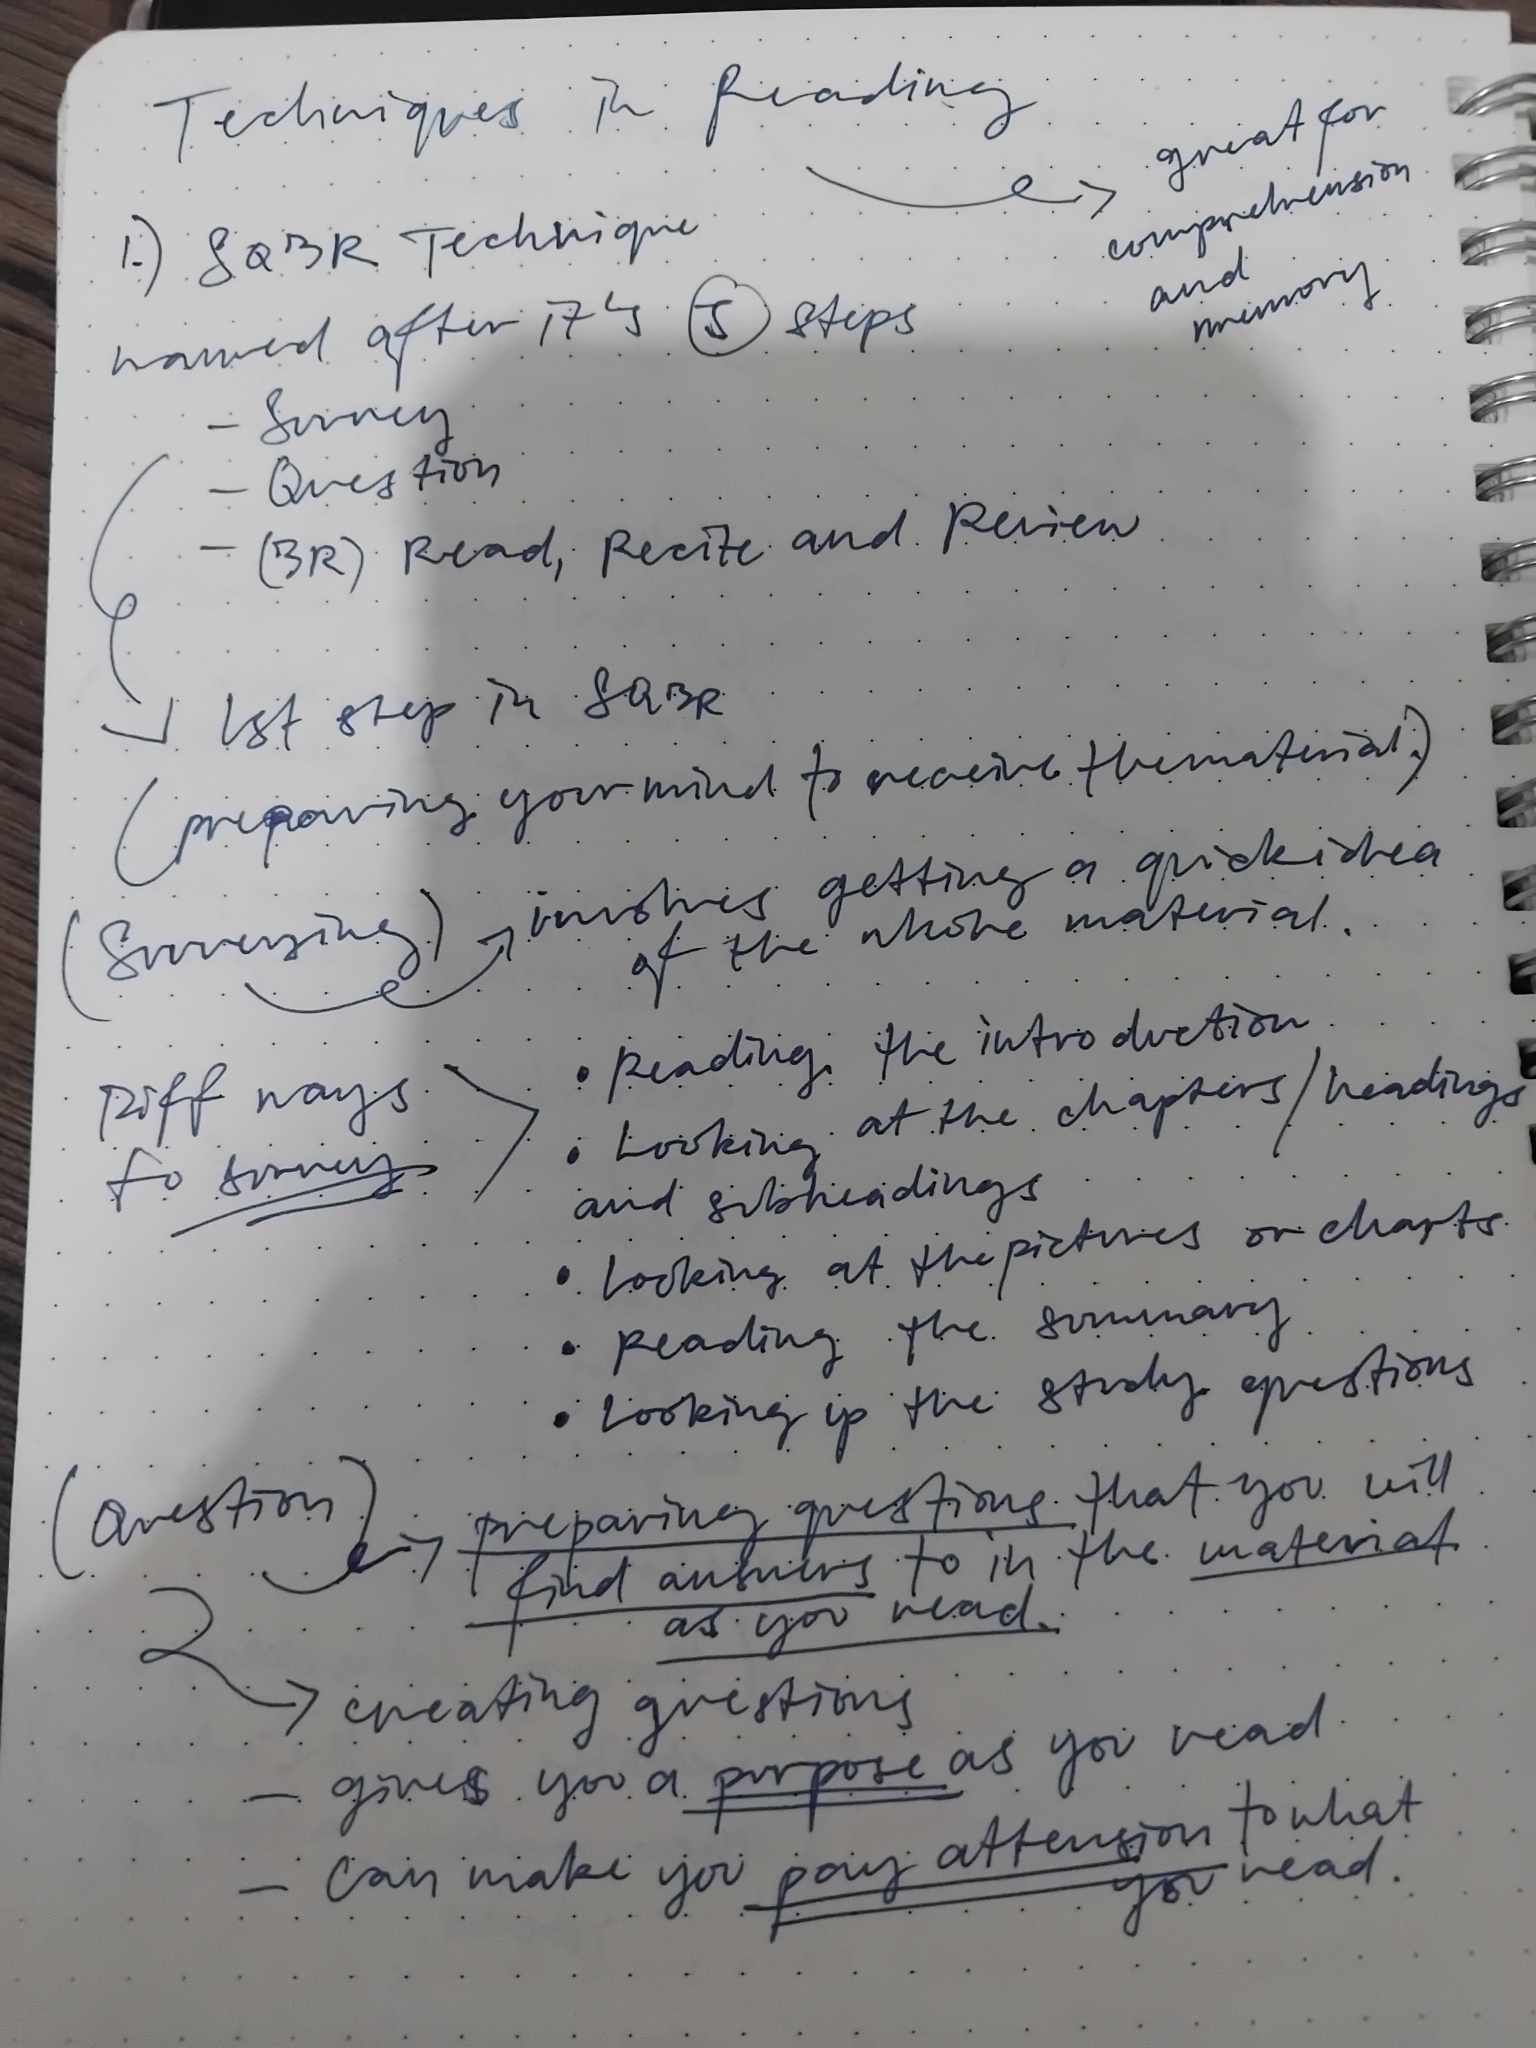 Techniques in Reading
great for
comprehension
and
memory
1.) SQ3R Technique
named after it's 5 steps
- Survey
- Question
- (3R) Read, Recite and Review
1st step in SQ3R
(preparing your mind to receive the material.)
(Surveying) involves getting a quick idea
of the whole material.
Diff ways
to survey
• Reading the introduction
• Looking at the chapters/headings
and subheadings
• Looking at the pictures or charts
• Reading the summary
• Looking up the study questions
(Question) preparing questions that you will
find answers to in the material
as you read.
creating questions
- gives you a purpose as you read
- can make you pay attension to what
you read.